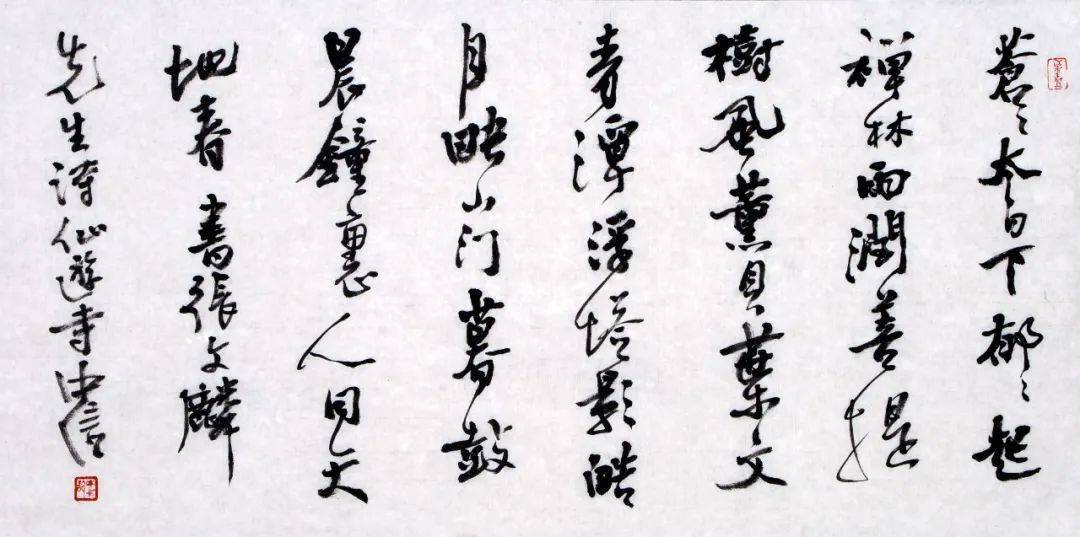 蒼〻太白下郁〻起
禅林雨潤菩提
樹風薰貝葉文
青潭浮塔影皓
月映山门暮鼓
晨鐘裏人同天
地春書張文麟
先生詩仙遊寺